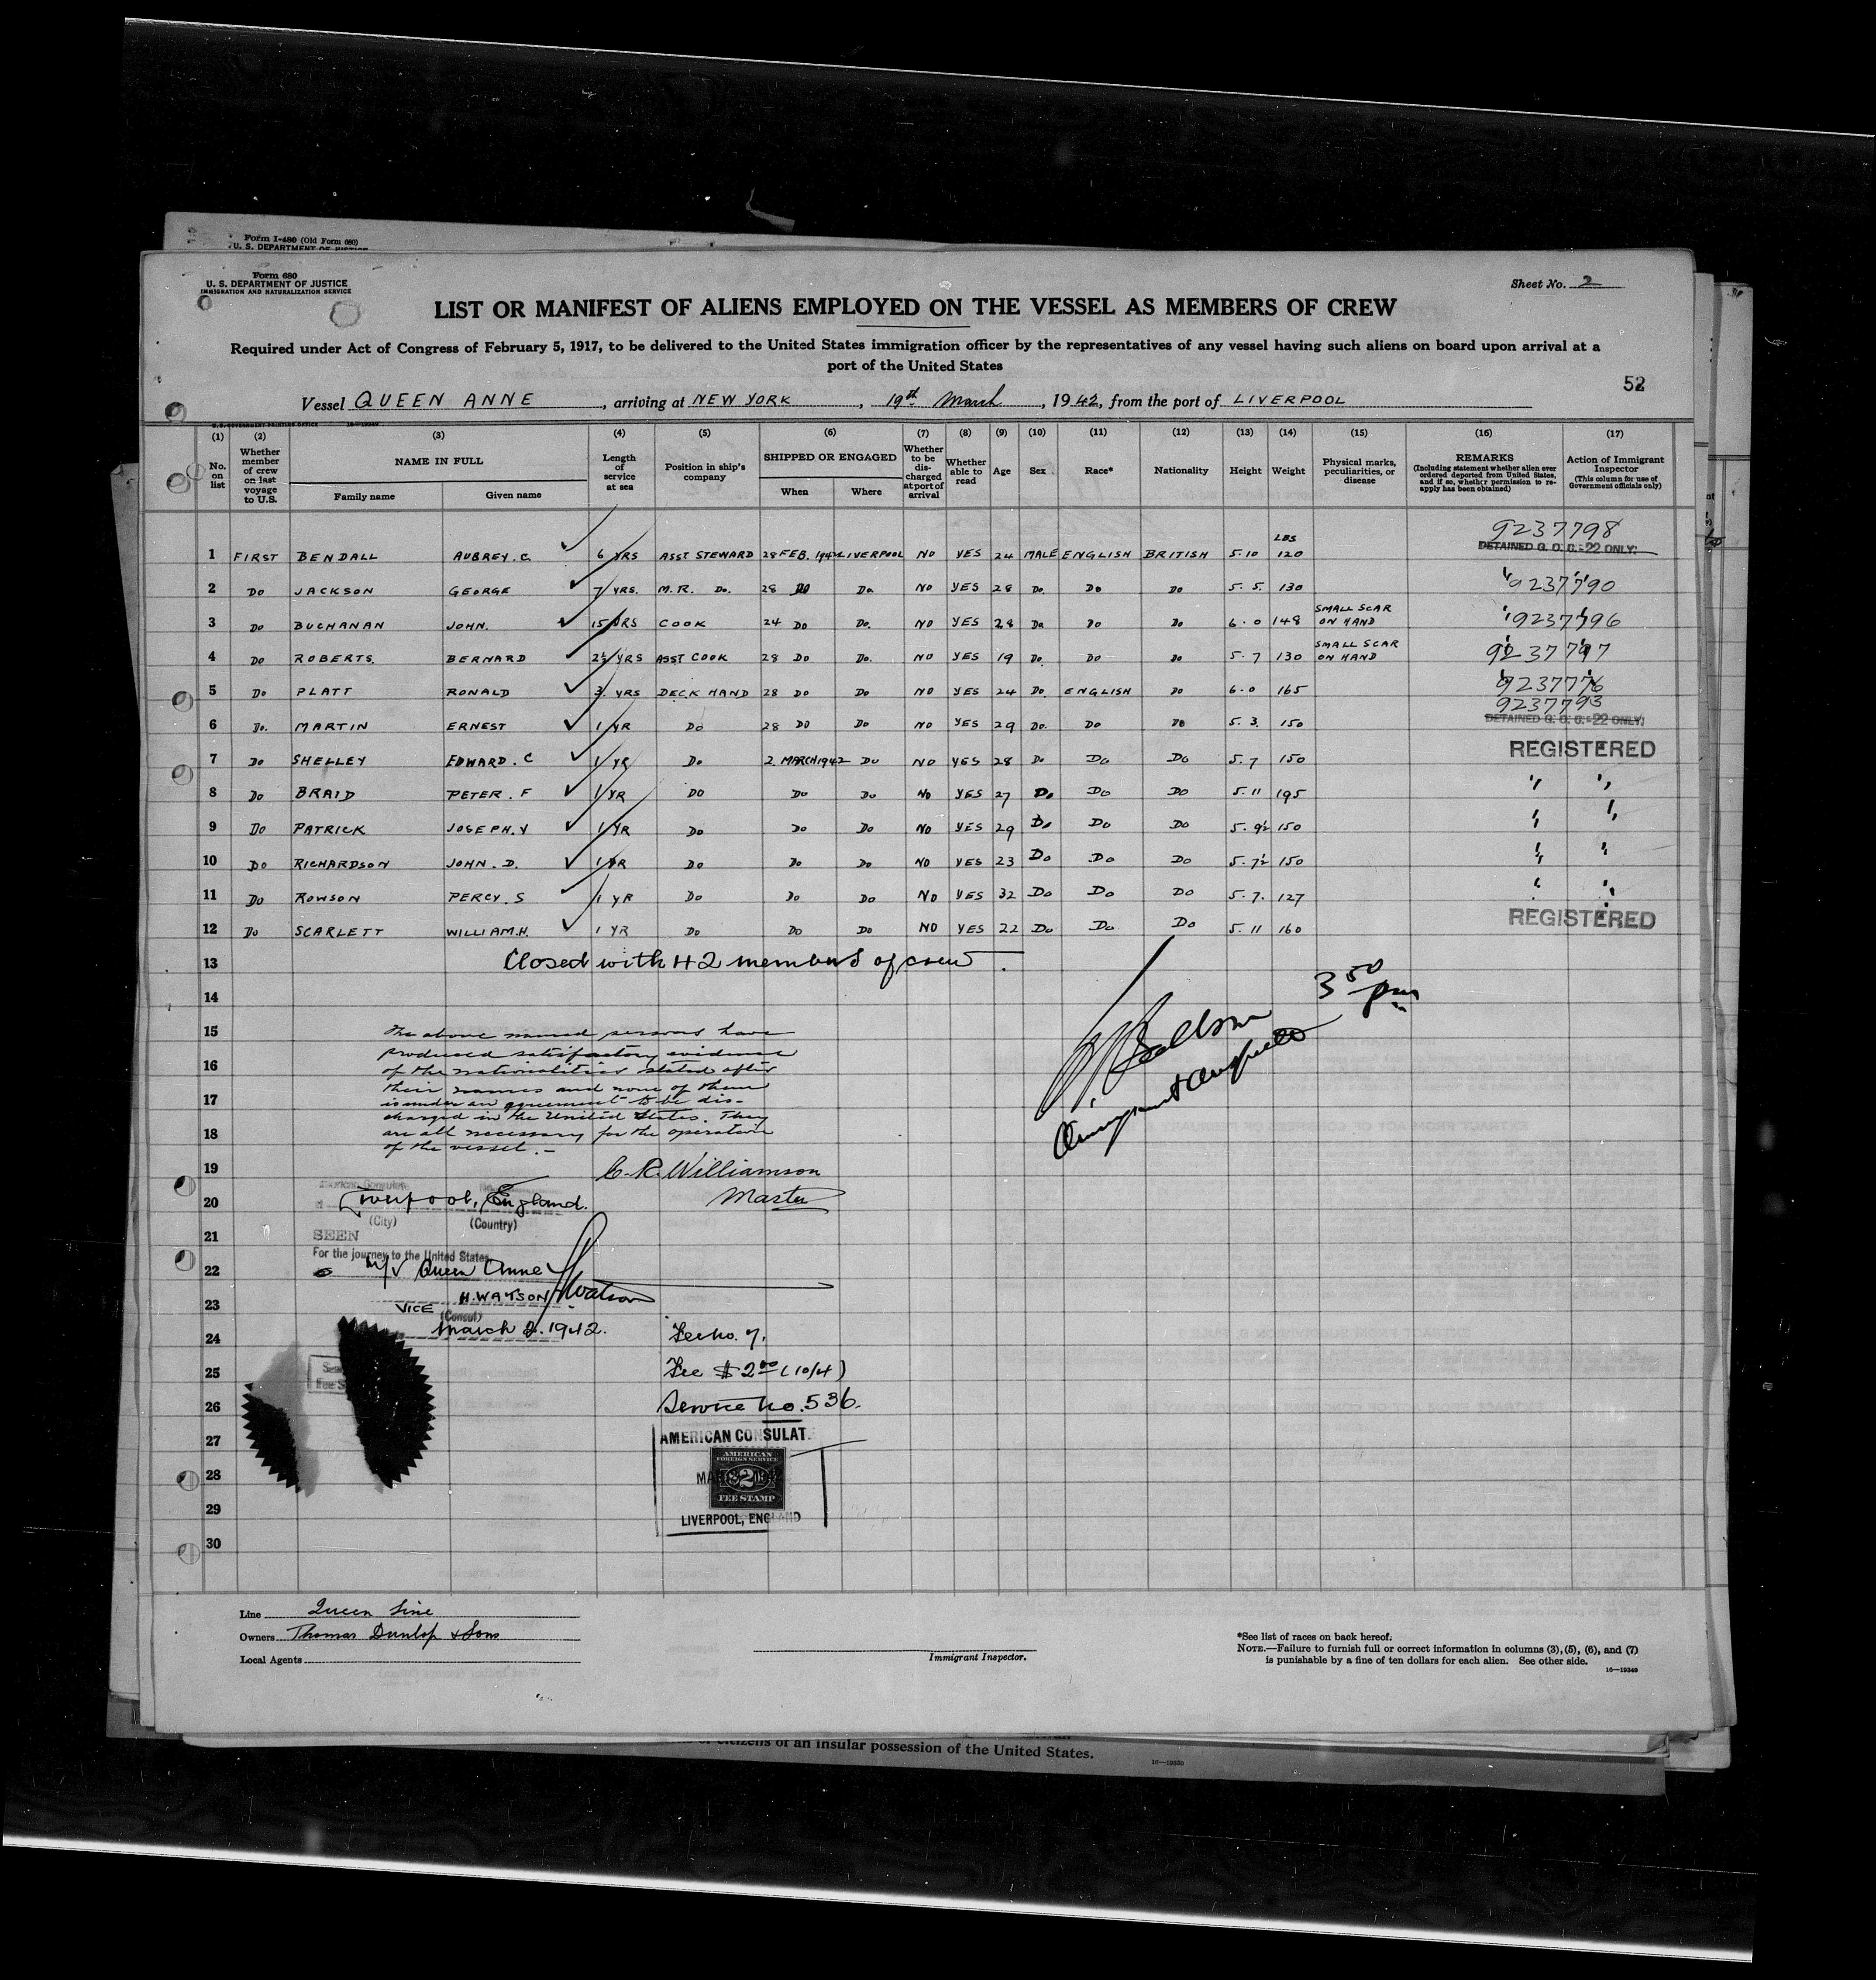 Form I-480 (Old Form 680)
U. S. DEPARTMENT OF JUSTICE
Form 680
U. S. DEPARTMENT OF JUSTICE
IMMIGRATION AND NATURALIZATION SERVICE
Sheet No. 2
LIST OR MANIFEST OF ALIENS EMPLOYED ON THE VESSEL AS MEMBERS OF CREW
Required under Act of Congress of February 5, 1917, to be delivered to the United States immigration officer by the representatives of any vessel having such aliens on board upon arrival at a
port of the United States
52
Vessel QUEEN ANNE, arriving at NEW YORK, 19th March, 1942, from the port of LIVERPOOL
U.S. GOVERNMENT PRINTING OFFICE 16—19349
(1) (2) (3) (4) (5) (6) (7) (8) (9) (10) (11) (12) (13) (14) (15) (16) (17)
No. on list
Whether member of crew on last voyage to U.S.
NAME IN FULL
Family name Given name
Length of service at sea
Position in ship's company
SHIPPED OR ENGAGED
When Where
Whether to be discharged at port of arrival
Whether able to read
Age
Sex
Race*
Nationality
Height
Weight
Physical marks, peculiarities, or disease
REMARKS
(Including statement whether alien ever ordered deported from United States, and if so, whether permission to reapply has been obtained)
Action of Immigrant Inspector
(This column for use of Government officials only)
1 FIRST BENDALL AUBREY. C 6 YRS ASST STEWARD 28 FEB. 1942 LIVERPOOL NO YES 24 MALE ENGLISH BRITISH 5.10 LBS 120 9237798 DETAINED G. O. C.-22 ONLY.
2 DO JACKSON GEORGE 7 YRS. M.R. DO. 28 DO Do. NO YES 28 Do. Do Do 5. 5. 130 9237790
3 DO BUCHANAN JOHN. 15 YRS COOK 24 DO Do. NO YES 28 Do Do Do 6. 0 148 SMALL SCAR ON HAND 9237796
4 DO ROBERTS. BERNARD 2½ YRS ASST COOK 28 DO Do. NO YES 19 Do. Do Do 5. 7 130 SMALL SCAR ON HAND 9237797
5 DO PLATT RONALD 3. YRS DECK HAND 28 DO Do NO YES 24 Do. ENGLISH Do 6.0 165 9237776
6 Do. MARTIN ERNEST 1 YR Do 28 DO Do NO YES 29 Do. Do Do 5. 3. 150 9237793 DETAINED G. O. C.-22 ONLY.
7 Do SHELLEY EDWARD. C 1 YR Do 2. MARCH 1942 Do NO YES 28 Do Do Do 5. 7 150 REGISTERED
8 Do BRAID PETER. F 1 YR DO Do Do NO YES 27 Do Do Do 5. 11 195 " "
9 Do PATRICK JOSEPH. V 1 YR Do Do Do NO YES 29 Do Do Do 5. 9½ 150 " "
10 Do RICHARDSON JOHN. D. 1 YR Do Do Do NO YES 23 Do Do Do 5. 7½ 150 " "
11 Do ROWSON PERCY. S 1 YR Do Do Do NO YES 32 Do Do Do 5. 7. 127 " "
12 Do SCARLETT WILLIAM.H. 1 YR Do Do Do NO YES 22 Do Do Do 5. 11 160 REGISTERED
13 Closed with 42 members of crew.
14
3 50 pm
15 The above named persons have
produced satisfactory evidence
16 of the nationalities stated after
their names and none of them
17 is under an agreement to be dis-
charged in the United States. They
18 are all necessary for the operation
of the vessel. -
19 C. R. Williamson
20 Master
Liverpool, England.
(City) (Country)
21 SEEN
For the journey to the United States
22 M/V Queen Anne
23 H. WATSON HWatson
VICE (Consul)
24 March 2. 1942.
Fee No. 7.
25 Fee $ 2.00 (10/4)
26 Service No. 536.
27 AMERICAN CONSULAT
AMERICAN FOREIGN SERVICE
28 MAR 2 1942
2
FEE STAMP
29 LIVERPOOL, ENGLAND
30
Line Queen Line
Owners Thomas Dunlop & Sons
Local Agents
Immigrant Inspector.
*See list of races on back hereof.
NOTE.—Failure to furnish full or correct information in columns (3), (5), (6), and (7)
is punishable by a fine of ten dollars for each alien. See other side.
16—19349
citizens of an insular possession of the United States.
16—19350